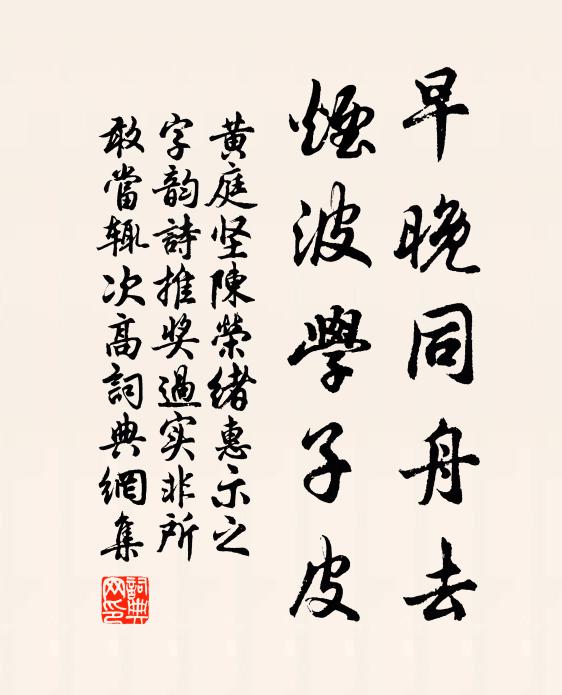 早晚同舟去
煙波學子皮
黄庭坚陳榮緒惠示之
字韵詩推奖過实非所
敢當辄次高詞典網集
詞典网印